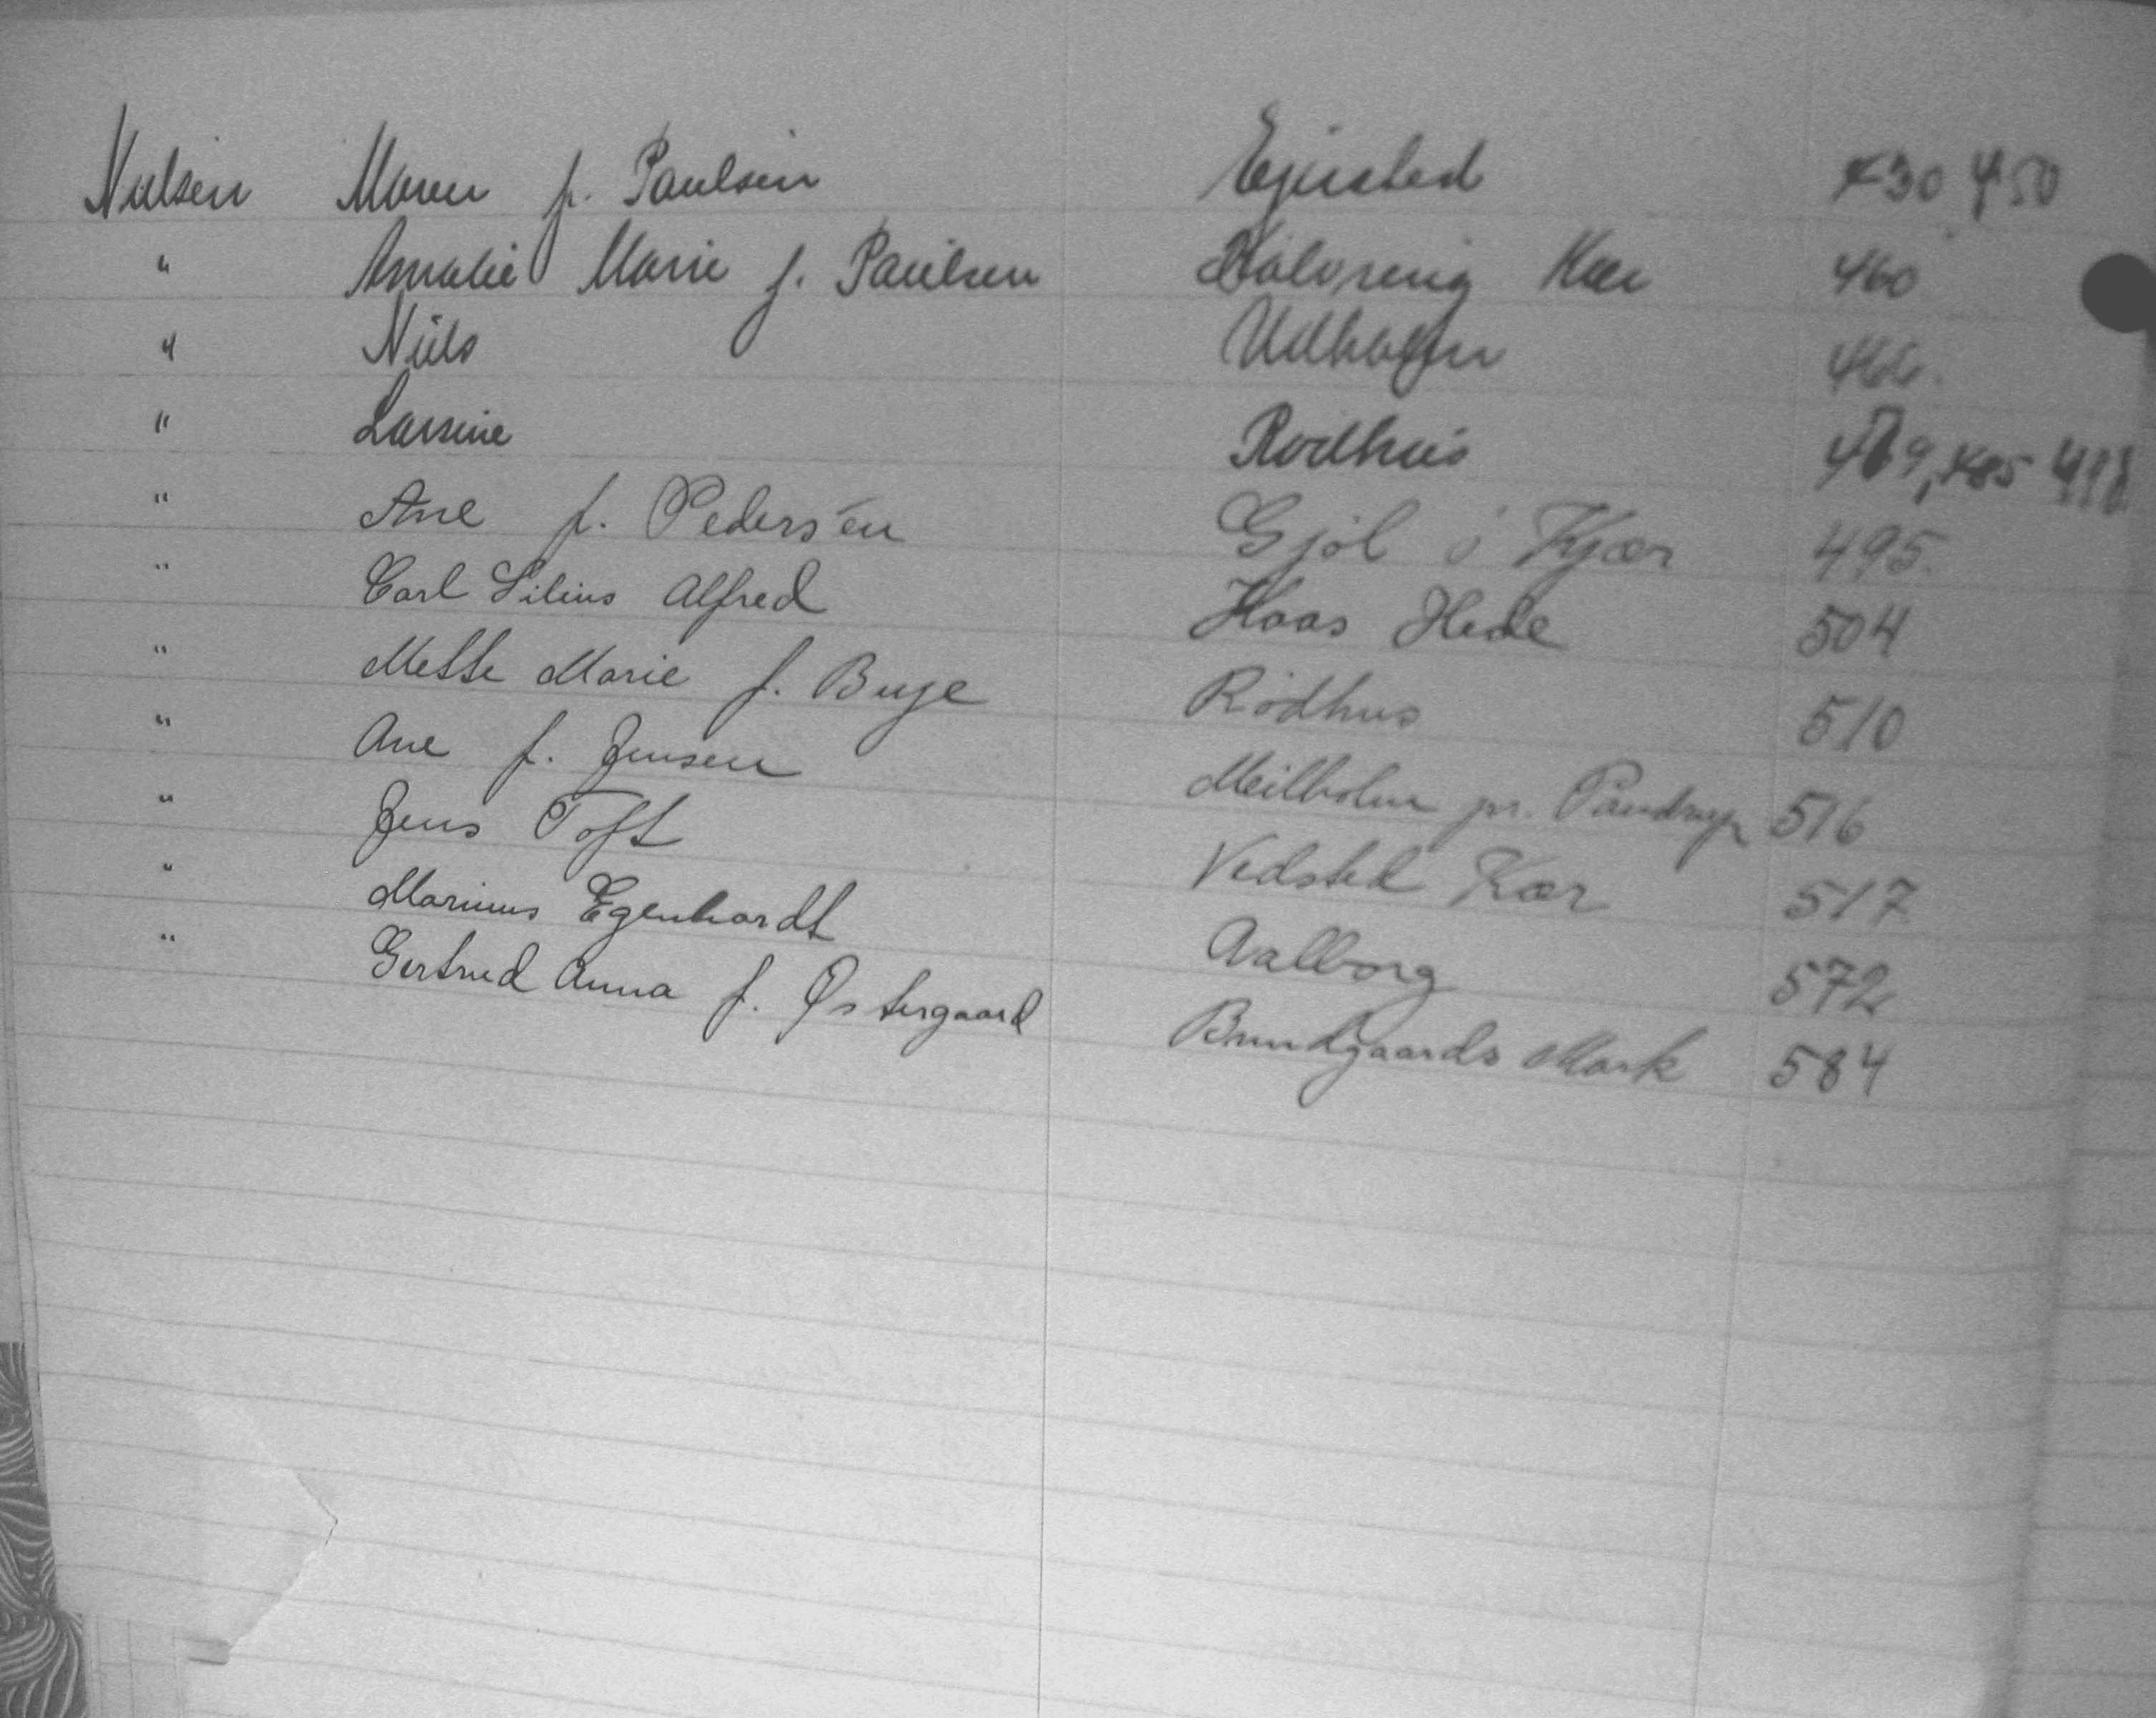 Nielsen Maren f. Paulsen Ejersted 430 450
" Amalie Marie f. Paulsen Halvreng Kær 460
" Niels Udholm
" Larsine Rødhus 485 498
" Ane f. Pedersen Gjøl i Kjær 495.
" Carl Silius Alfred Haas Hede 504
" Mette Marie f. Buje Rødhus 510
" Ane f. Jensen Meilholm pr. Pandrup 516
" Jens Toft Vedsted Kær 517
" Marinus Egenhardt Aalborg 572
" Gertrud Anna f. Østergaard Brundgaards Mark 584